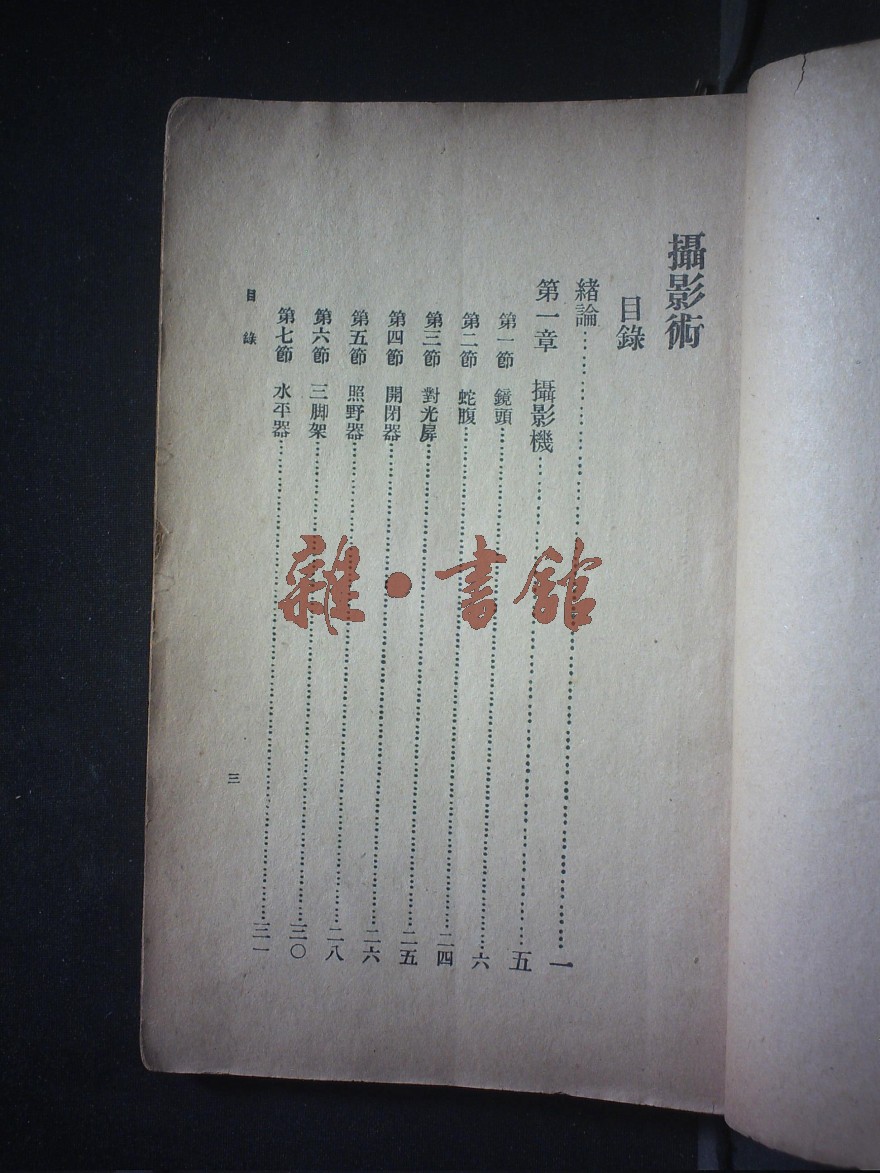 攝影術
目錄
緒論……一
第一章 攝影機……五
第一節 鏡頭……六
第二節 蛇腹……二四
第三節 對光屏……二五
第四節 開閉器……二六
第五節 照野器……二八
第六節 三脚架……三〇
第七節 水平器……三一
目錄
三
雜·書館